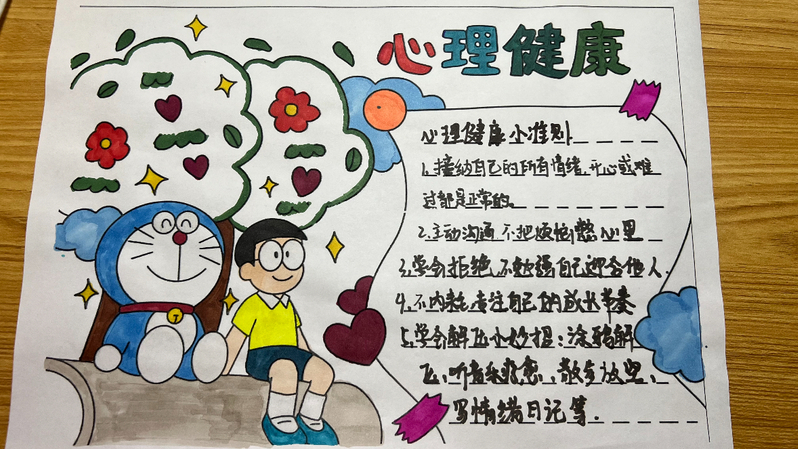 心理健康
心理健康小准则
1.接纳自己的所有情绪,开心或难
过都是正常的。
2.主动沟通 不把烦恼憋心里
3.学会拒绝,不勉强自己迎合他人.
4.不内耗,专注自己的成长节奏
5.学会解压小妙招:涂鸦解
压、听音乐疗愈、散步放空、
写情绪日记等.